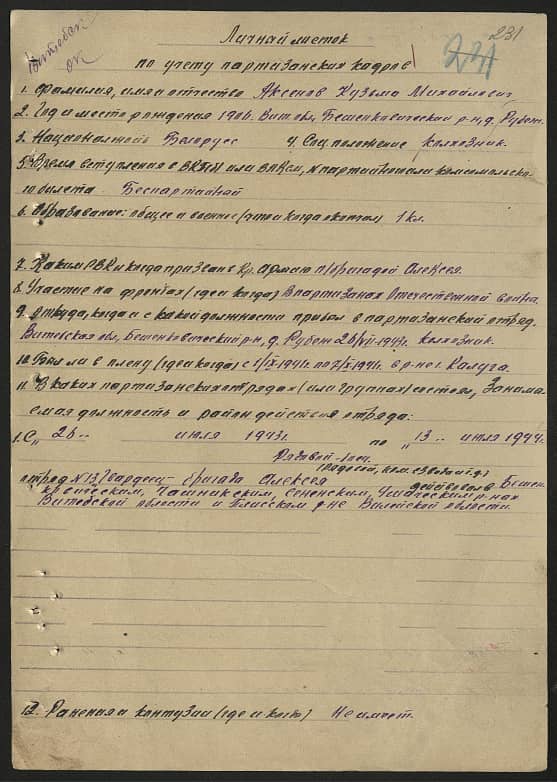 231
Личный листок
по учету партизанских кадров
1. Фамилия, имя отчество Аксенов Кузьма Михайлович
2. Год и место рождения 1906. Витобл, Бешенковический р-н, д. Рубеж.
3. Национальность Белорусс 4. Соц положение колхозник.
5. Время вступления в ВКП(б) или ВЛКСМ, № партийного или комсомольско-
го билета Беспартийный
6. Образование: общее и военное (что и когда окончил) 1 кл.
7. Каким РВК и когда призван в Кр. армию п/бригадой Алексея.
8. Участие на фронтах (где и когда) В партизанах Отечественной война.
9. Откуда, когда и с какой должности прибыл в партизанский отряд.
Витебская обл, Бешенковический р-н, д. Рубеж 26/VII-1943г. колхозник.
10. Был ли в плену (где и когда) с 1/IX-1941г. по 7/X-1941г. в р-не г. Калуга.
11. В каких партизанских отрядах (или группах) состоял, Занима-
емая должность и район действия отряда:
1. С „26" июля 1943г. по „13" июля 1944г.
Рядовой-боец.
отряд №13, Гвардеец- бригада Алексея действовала Бешен-
ковическим, Чашникским, Сенненским, Ушачским р-нах
Витебской области и Плисском р-не Вилейской области.
12. Ранения и контузии (где и когда) Не имеет.